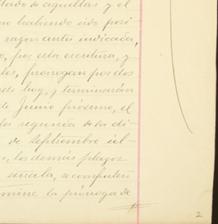 tado de aquellas y el
habiendo sido posi
razon antes indicada,
, por esta escritura, y
les, prorogan por dos
desde hoy, y terminarán
de Junio próximo, el
la segunda de la di-
de Septiembre úl-
los demás plazos
señala, se computen
termine la prórroga de
2